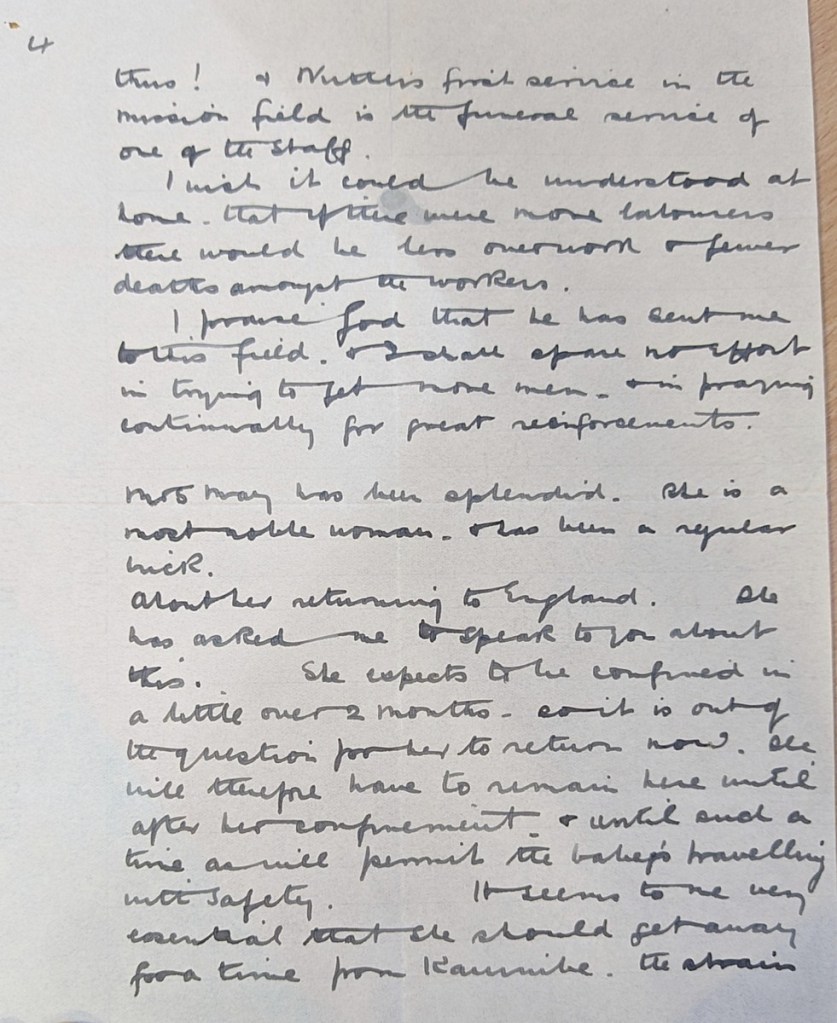 4
thus! & Nutter's first service in the
mission field is the funeral service of
one of the Staff.
I wish it could be understood at
home - that if there were more labourers
there would be less overwork & fewer
deaths amongst the workers.
I praise God that he has sent me
to this field. & I shall spare no effort
in trying to get more men - & in praying
continually for great reinforcements.
Mrs May has been splendid. She is a
most noble woman - & has been a regular
brick.
About her returning to England. She
has asked me to speak to you about
this. She expects to be confined in
a little over 2 months - so it is out of
the question for her to return now. She
will therefore have to remain here until
after her confinement - & until such a
time as will permit the baby's travelling
with safety. It seems to me very
essential that she should get away
for a time from Kasumbe. The strain